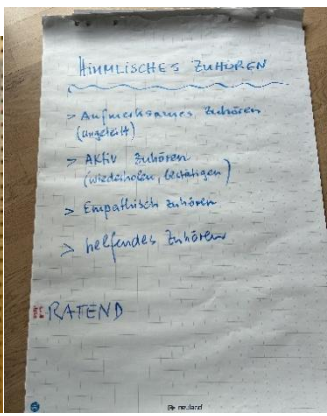 HIMMLISCHES ZUHÖREN
> Aufmerksames Zuhören
(ungeteilt)
> AKtiv Zuhören
(wiederholen, bestätigen)
> Empathisch zuhören
> helfendes Zuhören
BERATEND
neuland